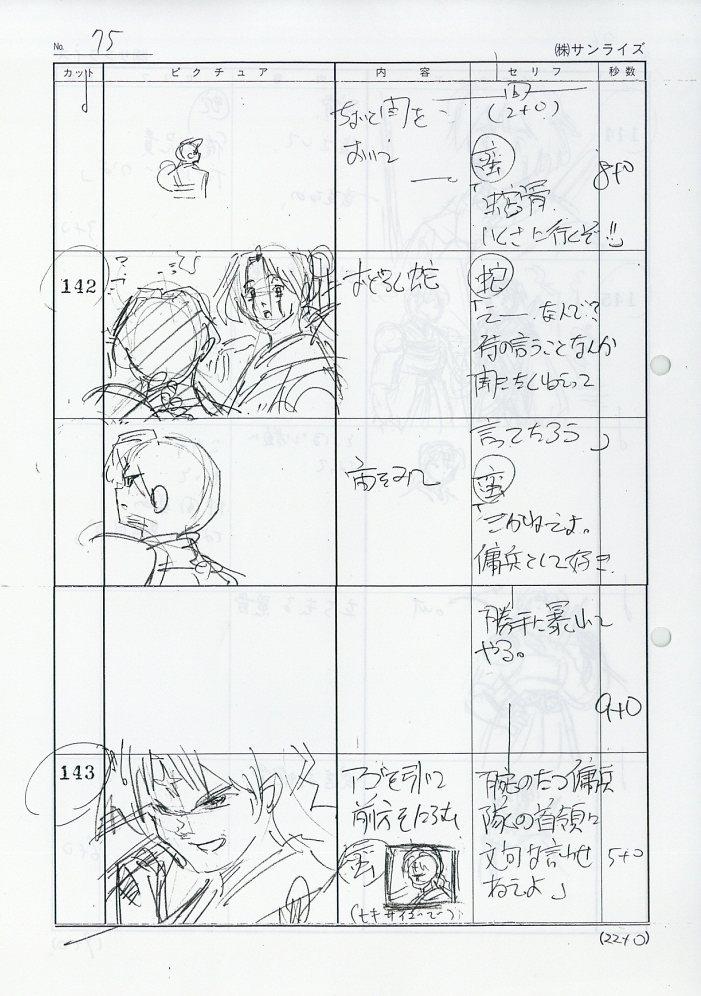 No. 75
(株)サンライズ
カット ピクチュア 内容 セリフ 秒数
ちょいと間を
おいて
(2+0)
蛮
「蛇骨、
いくさに行くぞ!!
8+0
142
おどろく蛇
蛇
「えー、なんで?
侍の言うことなんか
聞きたくねえって
言ってたろう」
蛮
「きかねえよ。
傭兵として好き
勝手に暴れて
やる。
9+0
143
アゴを引いて
前方をにらむ
蛮
腕のたつ傭兵
隊の首領に
文句な言わせ
ねえよ」
5+0
(22+0)